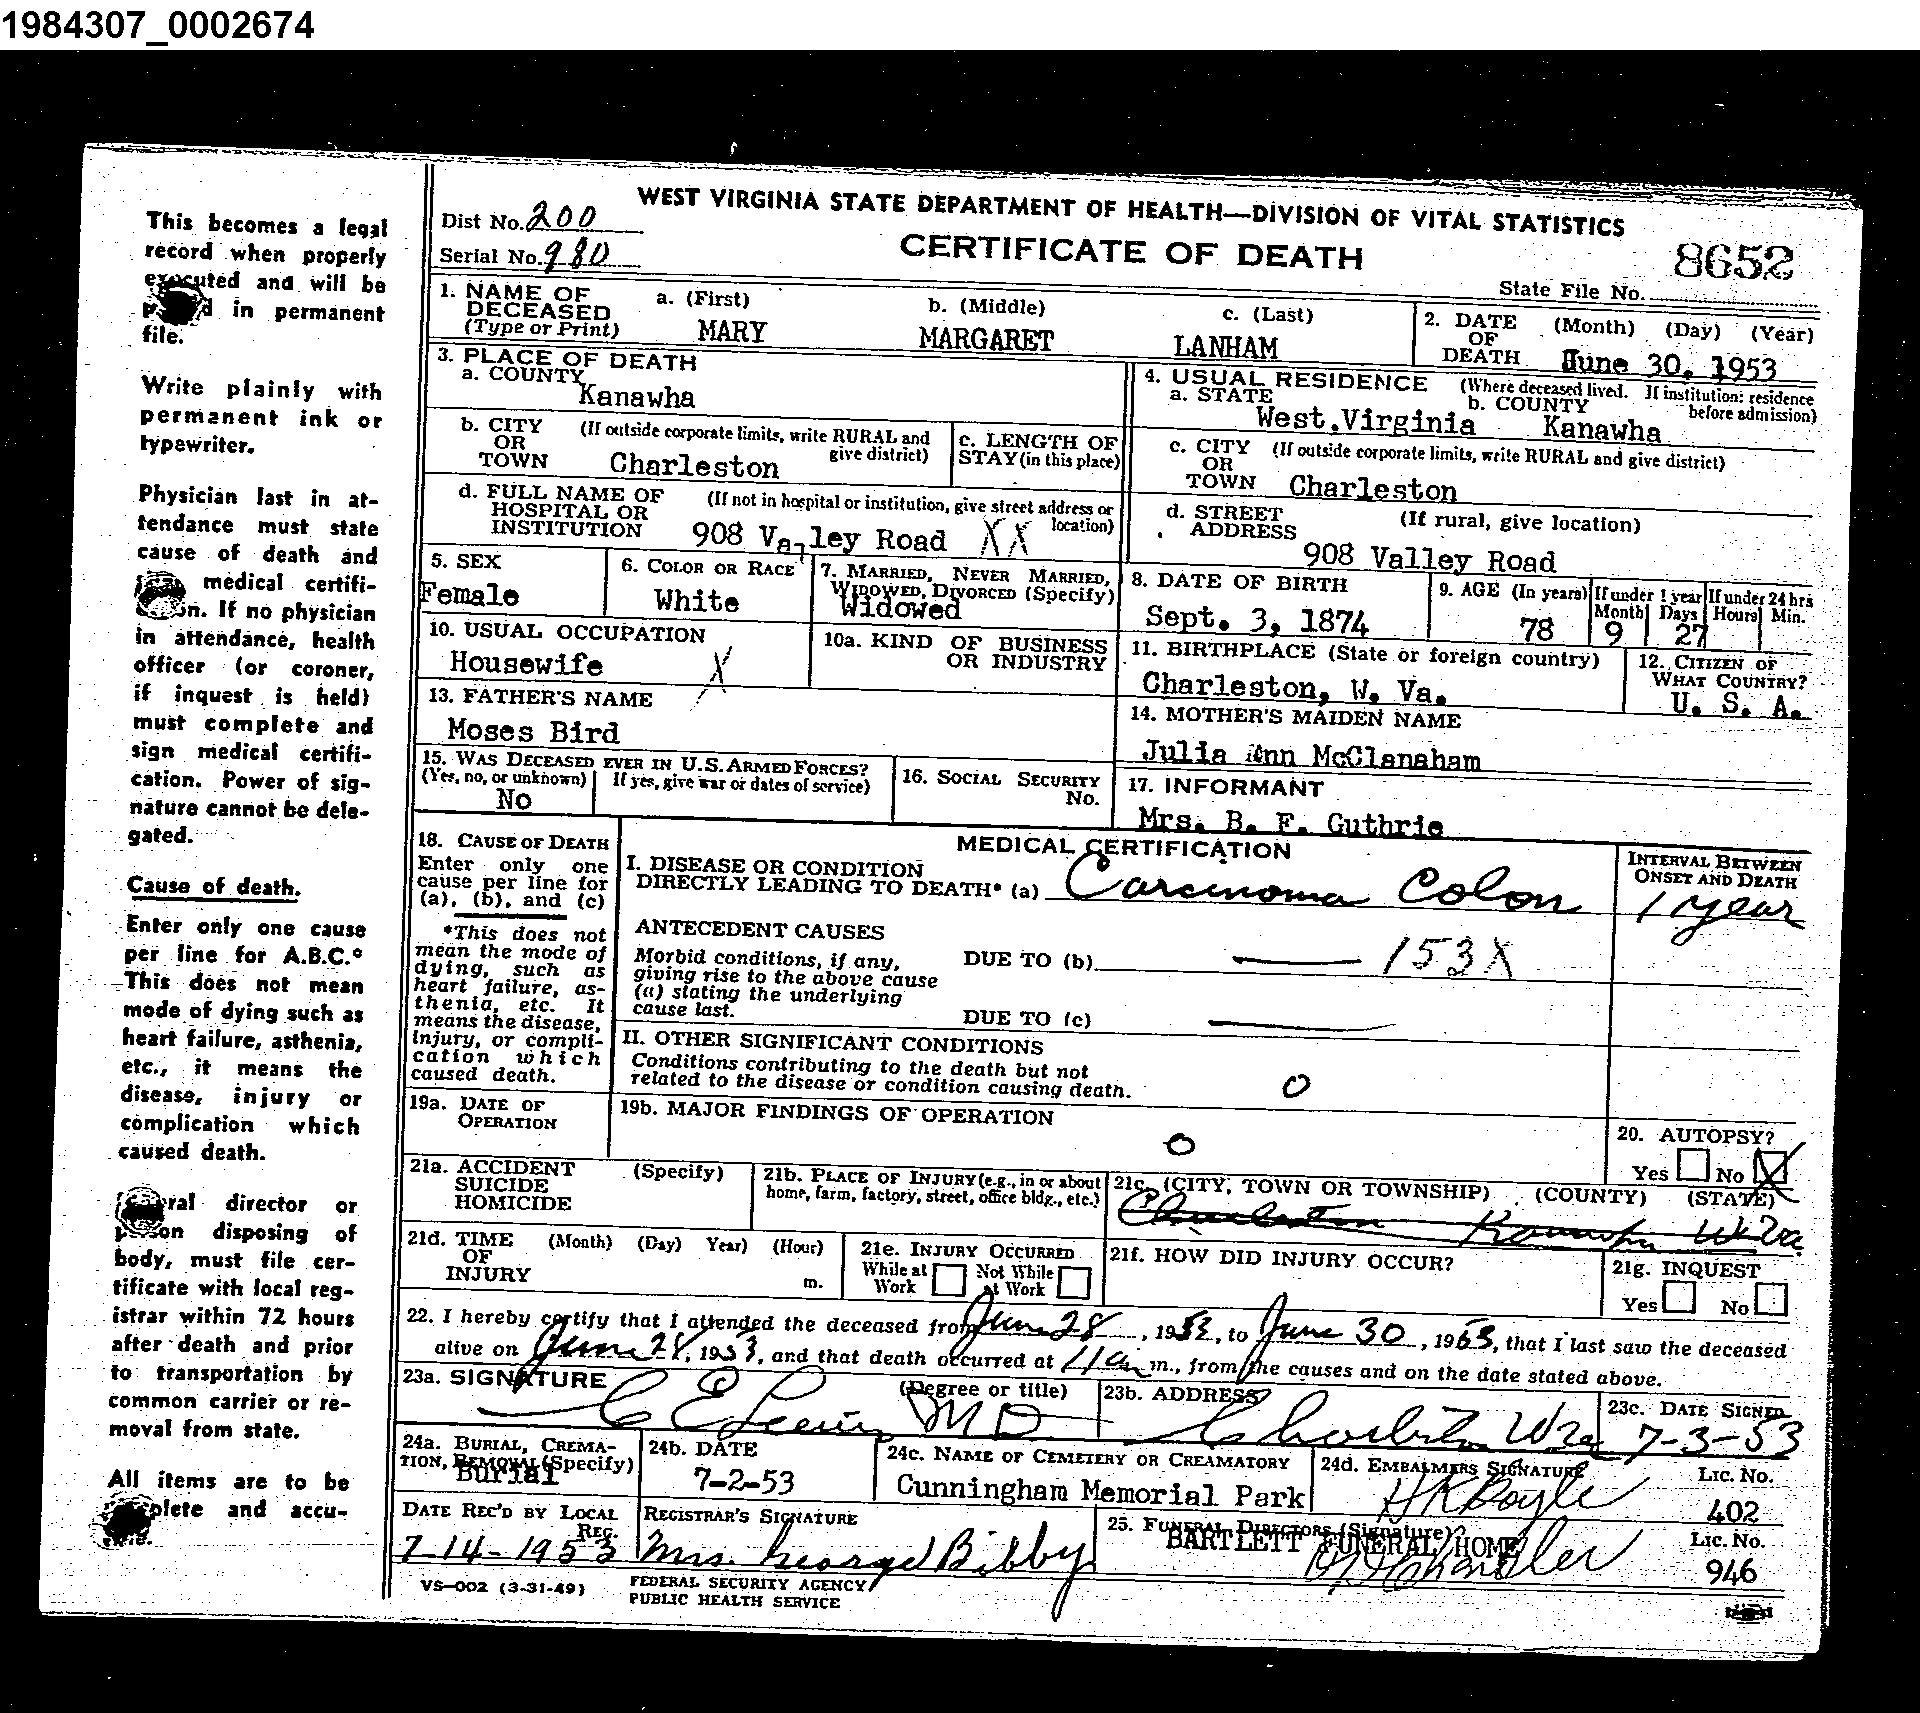 1984307_0002674
This becomes a legal
record when properly
executed and will be
in permanent
file.
Write plainly with
permanent ink or
typewriter.
Physician last in at-
tendance must state
cause of death and
medical certifi-
If no physician
in attendance, health
officer (or coroner,
if inquest is held)
must complete and
sign medical certifi-
cation. Power of sig-
nature cannot be dele-
gated.
Cause of death.
Enter only one cause
per line for A.B.C.*
This does not mean
mode of dying such as
heart failure, asthenia,
etc., it means the
disease, injury or
complication which
caused death.
director or
person disposing of
body, must file cer-
tificate with local reg-
istrar within 72 hours
after death and prior
to transportation by
common carrier or re-
moval from state.
All items are to be
and accu-
WEST VIRGINIA STATE DEPARTMENT OF HEALTH—DIVISION OF VITAL STATISTICS
Dist No. 200
CERTIFICATE OF DEATH
Serial No. 980
8652
State File No.
1. NAME OF DECEASED (Type or Print) a. (First) b. (Middle) c. (Last)
MARY MARGARET LANHAM
2. DATE OF DEATH (Month) (Day) (Year)
June 30, 1953
3. PLACE OF DEATH
a. COUNTY
Kanawha
4. USUAL RESIDENCE (Where deceased lived. If institution: residence before admission)
a. STATE b. COUNTY
West.Virginia Kanawha
b. CITY OR TOWN (If outside corporate limits, write RURAL and give district)
Charleston
c. LENGTH OF STAY (in this place)
c. CITY OR TOWN (If outside corporate limits, write RURAL and give district)
Charleston
d. FULL NAME OF HOSPITAL OR INSTITUTION (If not in hospital or institution, give street address or location)
908 Valley Road XX
d. STREET ADDRESS (If rural, give location)
908 Valley Road
5. SEX
Female
6. COLOR OR RACE
White
7. MARRIED, NEVER MARRIED, WIDOWED, DIVORCED (Specify)
Widowed
8. DATE OF BIRTH
Sept. 3, 1874
9. AGE (In years) If under 1 year If under 24 hrs
Month Days Hours Min.
78 9 27
10. USUAL OCCUPATION
Housewife X
10a. KIND OF BUSINESS OR INDUSTRY
11. BIRTHPLACE (State or foreign country)
Charleston, W. Va.
12. CITIZEN OF WHAT COUNTRY?
U. S. A.
13. FATHER'S NAME
Moses Bird
14. MOTHER'S MAIDEN NAME
Julia Ann McClanaham
15. WAS DECEASED EVER IN U.S. ARMED FORCES?
(Yes, no, or unknown) If yes, give war or dates of service)
No
16. SOCIAL SECURITY No.
17. INFORMANT
Mrs. B. F. Guthrie
18. CAUSE OF DEATH
Enter only one
cause per line for
(a), (b), and (c)
*This does not
mean the mode of
dying, such as
heart failure, as-
thenia, etc. It
means the disease,
injury, or compli-
cation which
caused death.
MEDICAL CERTIFICATION
I. DISEASE OR CONDITION
DIRECTLY LEADING TO DEATH* (a) Carcinoma Colon
INTERVAL BETWEEN ONSET AND DEATH
1 year
ANTECEDENT CAUSES
Morbid conditions, if any,
giving rise to the above cause
(a) stating the underlying
cause last.
DUE TO (b) — 153X
DUE TO (c) —
II. OTHER SIGNIFICANT CONDITIONS
Conditions contributing to the death but not
related to the disease or condition causing death.
0
19a. DATE OF OPERATION
19b. MAJOR FINDINGS OF OPERATION
0
20. AUTOPSY?
Yes No X
21a. ACCIDENT SUICIDE HOMICIDE (Specify)
21b. PLACE OF INJURY (e.g., in or about home, farm, factory, street, office bldg., etc.)
21c. (CITY, TOWN OR TOWNSHIP) (COUNTY) (STATE)
Charleston Kanawha W Va
21d. TIME OF INJURY (Month) (Day) Year) (Hour) m.
21e. INJURY OCCURRED
While at Work Not While at Work
21f. HOW DID INJURY OCCUR?
21g. INQUEST
Yes No
22. I hereby certify that I attended the deceased from June 28, 1953, to June 30, 1953, that I last saw the deceased
alive on June 28, 1953, and that death occurred at 11 a m., from the causes and on the date stated above.
23a. SIGNATURE (Degree or title)
C E Lewis MD
23b. ADDRESS
Charleston W Va
23c. DATE SIGNED
7-3-53
24a. BURIAL, CREMATION, REMOVAL (Specify)
Burial
24b. DATE
7-2-53
24c. NAME OF CEMETERY OR CREAMATORY
Cunningham Memorial Park
24d. EMBALMERS SIGNATURE Lic. No.
H K Boyle 402
DATE REC'D BY LOCAL REG.
7-14-1953
REGISTRAR'S SIGNATURE
Mrs. George Bibby
25. FUNERAL DIRECTORS (Signature) Lic. No.
BARTLETT FUNERAL HOME
Chandler 946
VS-002 (3-31-49)
FEDERAL SECURITY AGENCY
PUBLIC HEALTH SERVICE